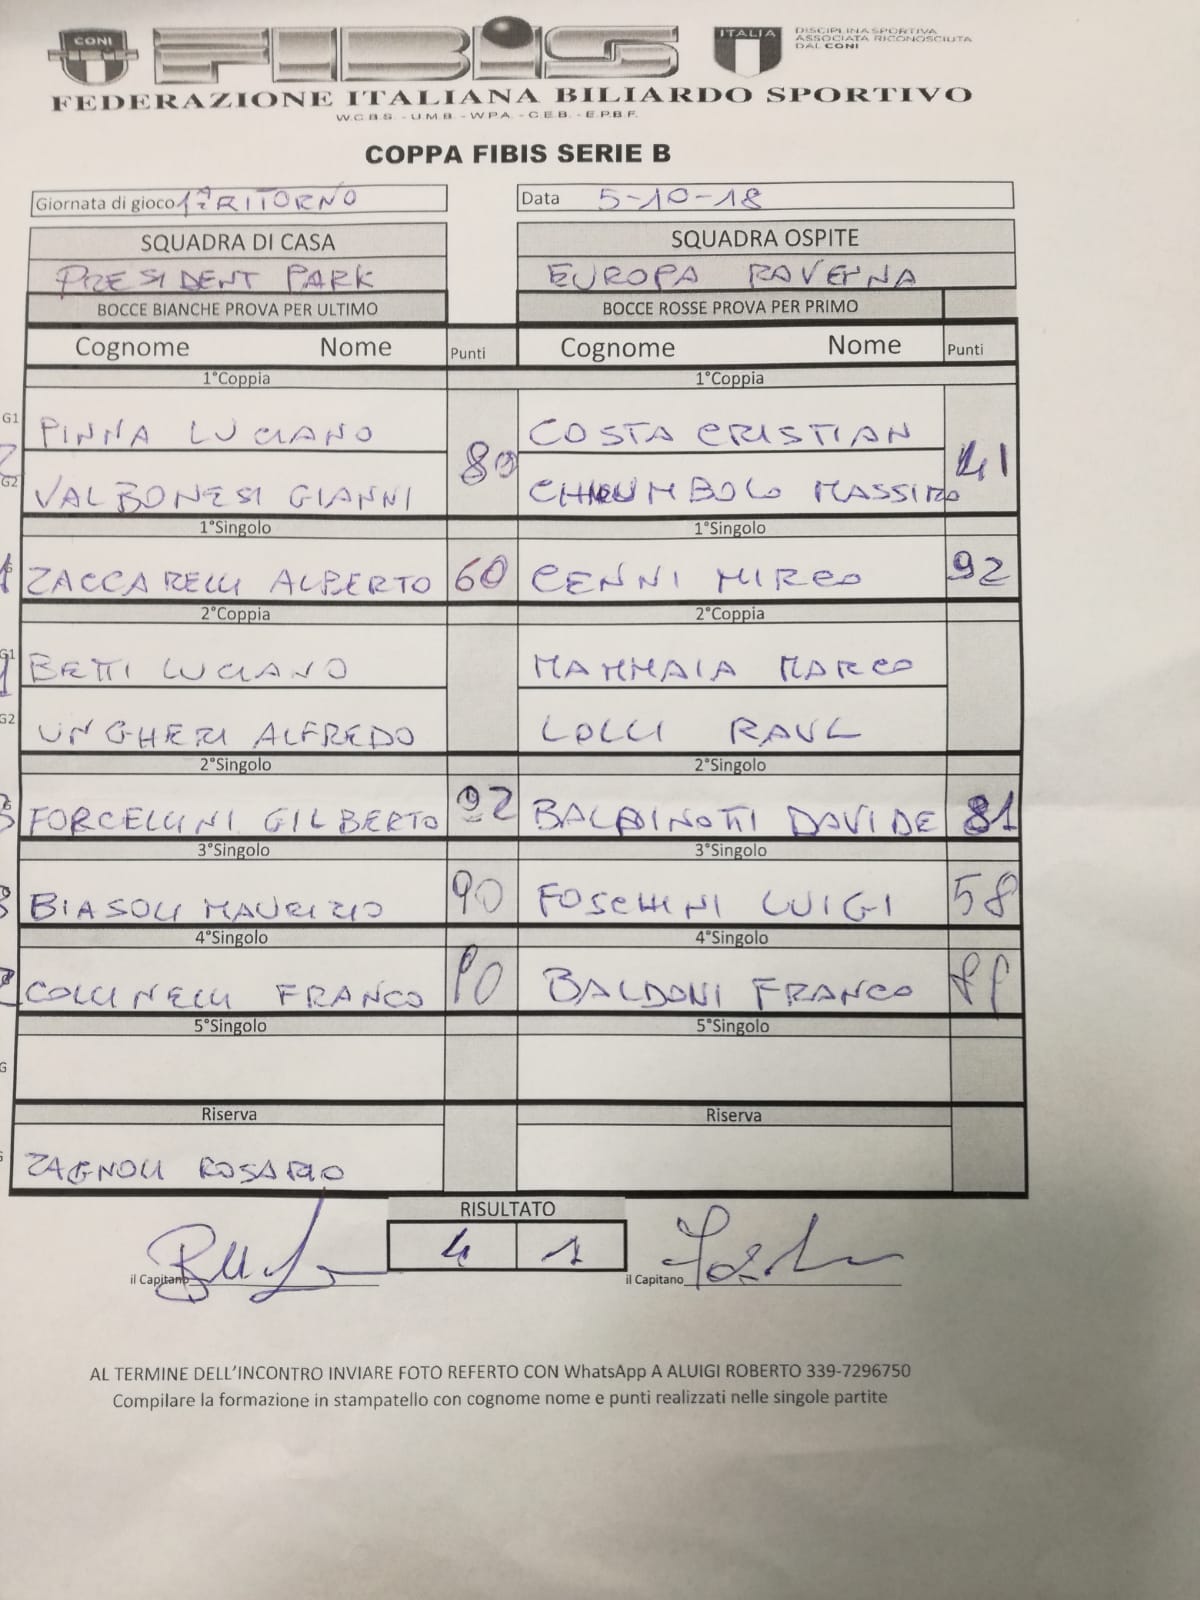 CONI FIBIS ITALIA DISCIPLINA SPORTIVA
ASSOCIATA RICONOSCIUTA
DAL CONI
FEDERAZIONE ITALIANA BILIARDO SPORTIVO
W.C.B.S. - U.M.B. - W.P.A. - C.E.B. - E.P.B.F.
COPPA FIBIS SERIE B
Giornata di gioco 1ª RITORNO Data 5-10-18
SQUADRA DI CASA SQUADRA OSPITE
PRESIDENT PARK EUROPA RAVENNA
BOCCE BIANCHE PROVA PER ULTIMO BOCCE ROSSE PROVA PER PRIMO
Cognome Nome Punti Cognome Nome Punti
1°Coppia 1°Coppia
G1 PINNA LUCIANO COSTA CRISTIAN
80 41
G2 VALBONESI GIANNI MASSIMO
1°Singolo 1°Singolo
ZACCARELLI ALBERTO 60 CENNI MIRCO 92
2°Coppia 2°Coppia
G1 BETTI LUCIANO MAMMAIA MARCO
G2 UNGHERI ALFREDO LOLLI RAUL
2°Singolo 2°Singolo
FORCELLINI GILBERTO 92 BALDINOTTI DAVIDE 81
3°Singolo 3°Singolo
BIASOLI MAURIZIO 90 FOSCHINI LUIGI 58
4°Singolo 4°Singolo
COLLINELLI FRANCO 90 BALDONI FRANCO
5°Singolo 5°Singolo
G
Riserva Riserva
ZAGNOLI ROSARIO
RISULTATO
4 1
il Capitano il Capitano
AL TERMINE DELL'INCONTRO INVIARE FOTO REFERTO CON WhatsApp A ALUIGI ROBERTO 339-7296750
Compilare la formazione in stampatello con cognome nome e punti realizzati nelle singole partite